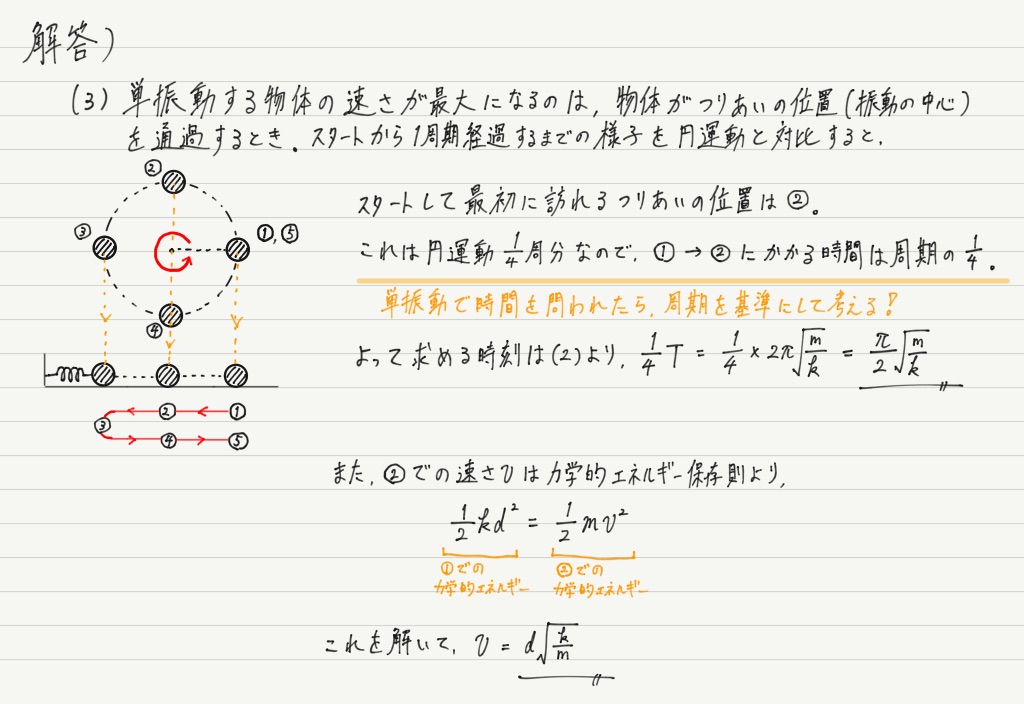 解答)
(3) 単振動する物体の速さが最大になるのは, 物体がつりあいの位置(振動の中心)
を通過するとき。スタートから1周期経過するまでの様子を円運動と対比すると,
②
③
①,⑤
④
スタートして最初に訪れるつりあいの位置は②。
これは円運動 1/4 周分なので, ①→②にかかる時間は周期の 1/4 。
単振動で時間を問われたら, 周期を基準にして考える!
よって求める時刻は(2)より, 1/4 T = 1/4 × 2π√(m/k) = π/2 √(m/k)
② ①
③
④ ⑤
また, ②での速さvは力学的エネルギー保存則より,
1/2 kd² = 1/2 mv²
①での ②での
力学的エネルギー 力学的エネルギー
これを解いて, v = d√(k/m)